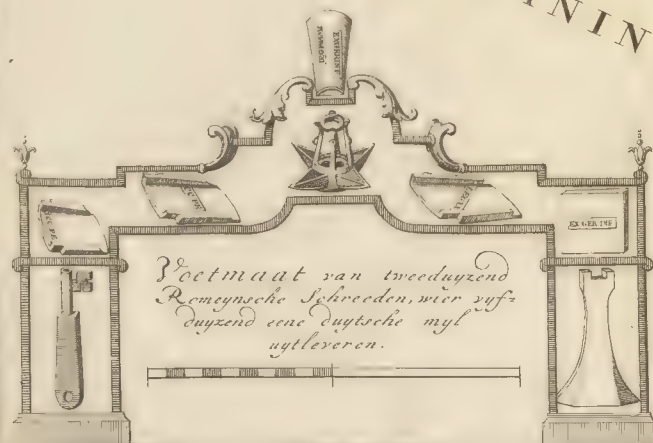 NIN
Voetmaat van tweeduyzend
Romeynsche Schreeden, wier vyf-
duyzend eene duytsche myl
uytleveren.
EX GER INF